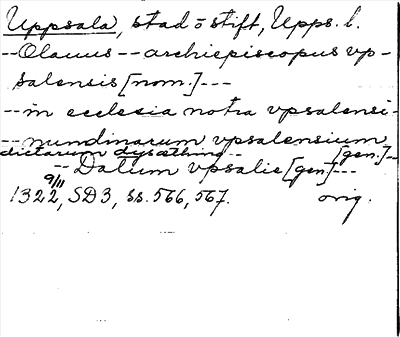 Uppsala, stad o stift, Upps. l.
--Olauus -- archiepiscopus vp-
salensis [nom.]---
--in ecclesia notra vpsalensi-
--nundinarum vpsalensium
dictarum dysæthing-- [gen.]--
--Datum vpsalie [gen]---
9/11
1322, SD3, ss. 566, 567. orig.